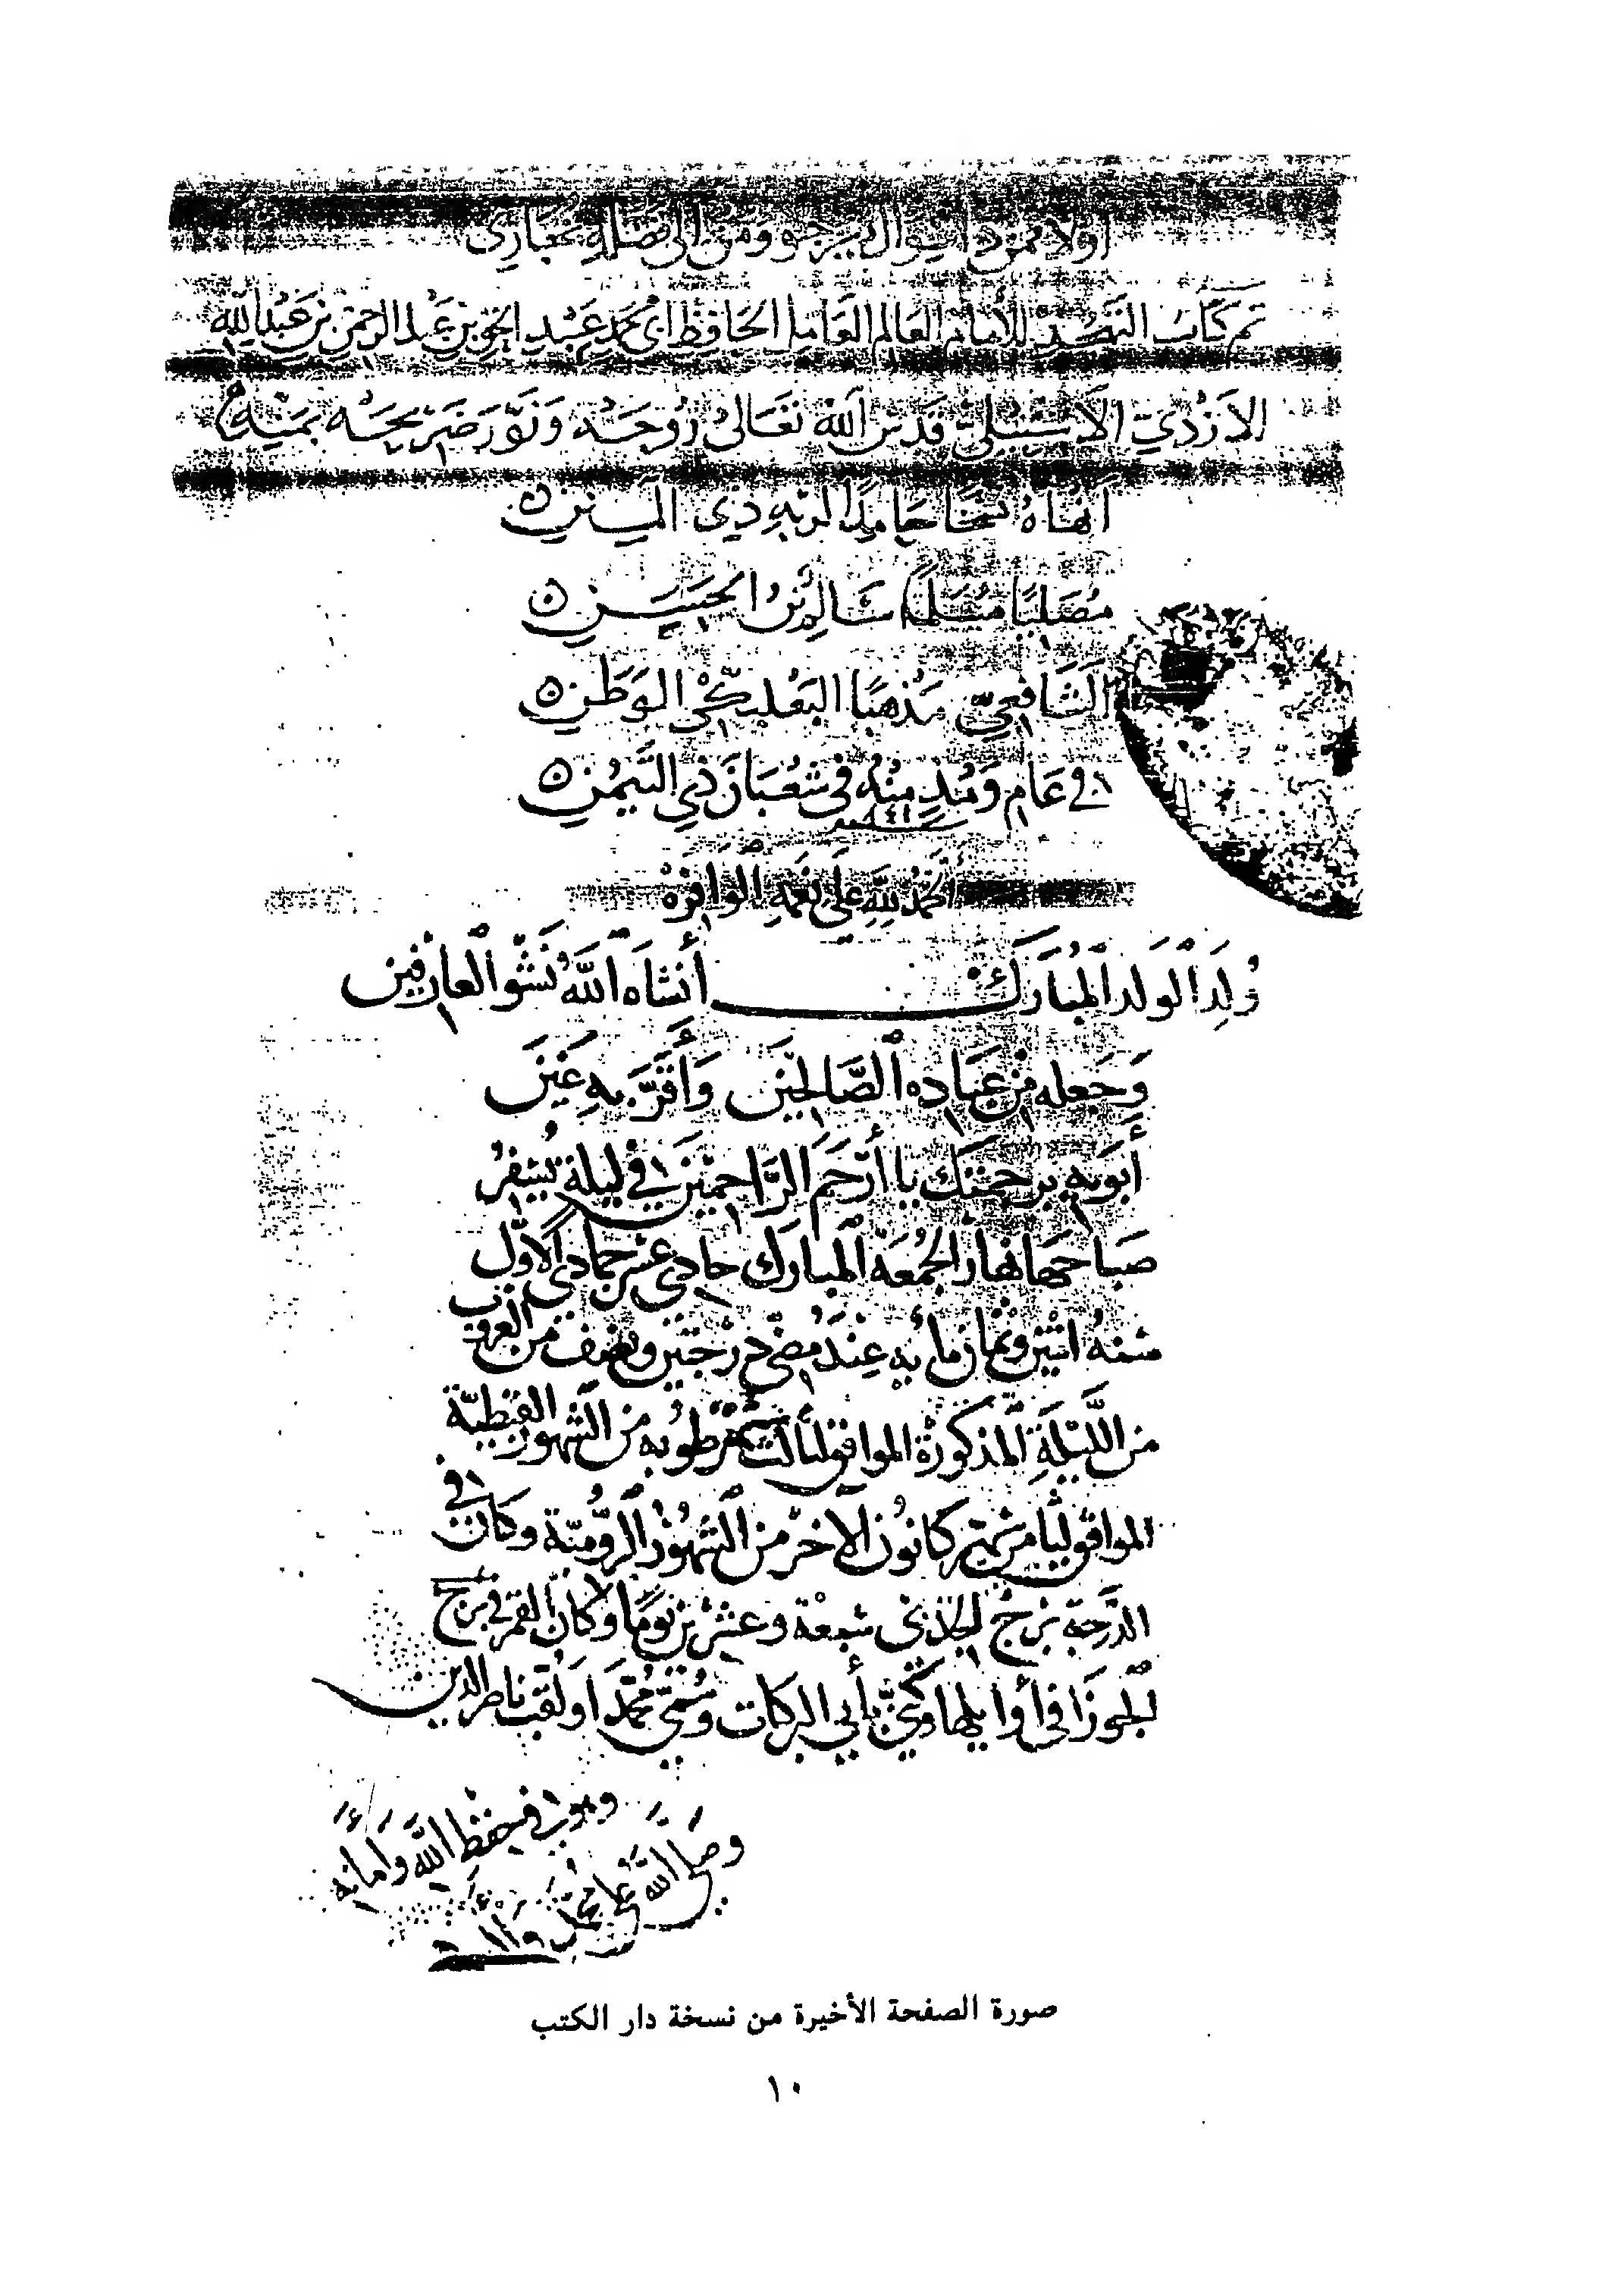 تم كتاب التهجد للامام العالم العامل الحافظ ابى محمد عبد الحق بن عبد الرحمن بن عبد الله
الازدي الاشبيلي قدس الله تعالى روحه ونور ضريحه بمنه
انهاه نسخا حامدا لربه ذي المنن
مصليا مسلما
الشافعي مذهبا البعلبكي الوطن
في عام ومذ منه في شعبان ذي اليمن
٨٤١
الحمد لله على نعمه الوافره
وُلِدَ الولد المُبارك أنشاه اللهُ نشو العارفين
وَجَعله من عباده الصَّالحين وَأقَرَّ به عَين
أبوَيه برحمتك يا أرْحَمَ الرَّاحمين في ليلة يُسفرُ
صَباحها نهار الجُمُعَة المبارك حادي عشر جمادي الأوَّل
سنة اثنين وثمان مايه عِندَ مُضي درجتين ونصف من الغروب
من اللّيلَةِ المذكورة الموافق لثالث طوبه من الشهور القبطيّة
الموافق لثامن كانون الآخر من الشهور الرُّوميّة وكان في
الدَّرجة بُرجُ الجَدْى سبعة وعشرين يومًا وكان القمر في برج
الجوزَا في أوايلها وكُنّي بأبي البركات وسُمّي مُحمّدا ولُقّب ناصر الدين
وهو في حفظ الله وَأمانه
وصلى الله على محمد وآله
صورة الصفحة الأخيرة من نسخة دار الكتب
١٠